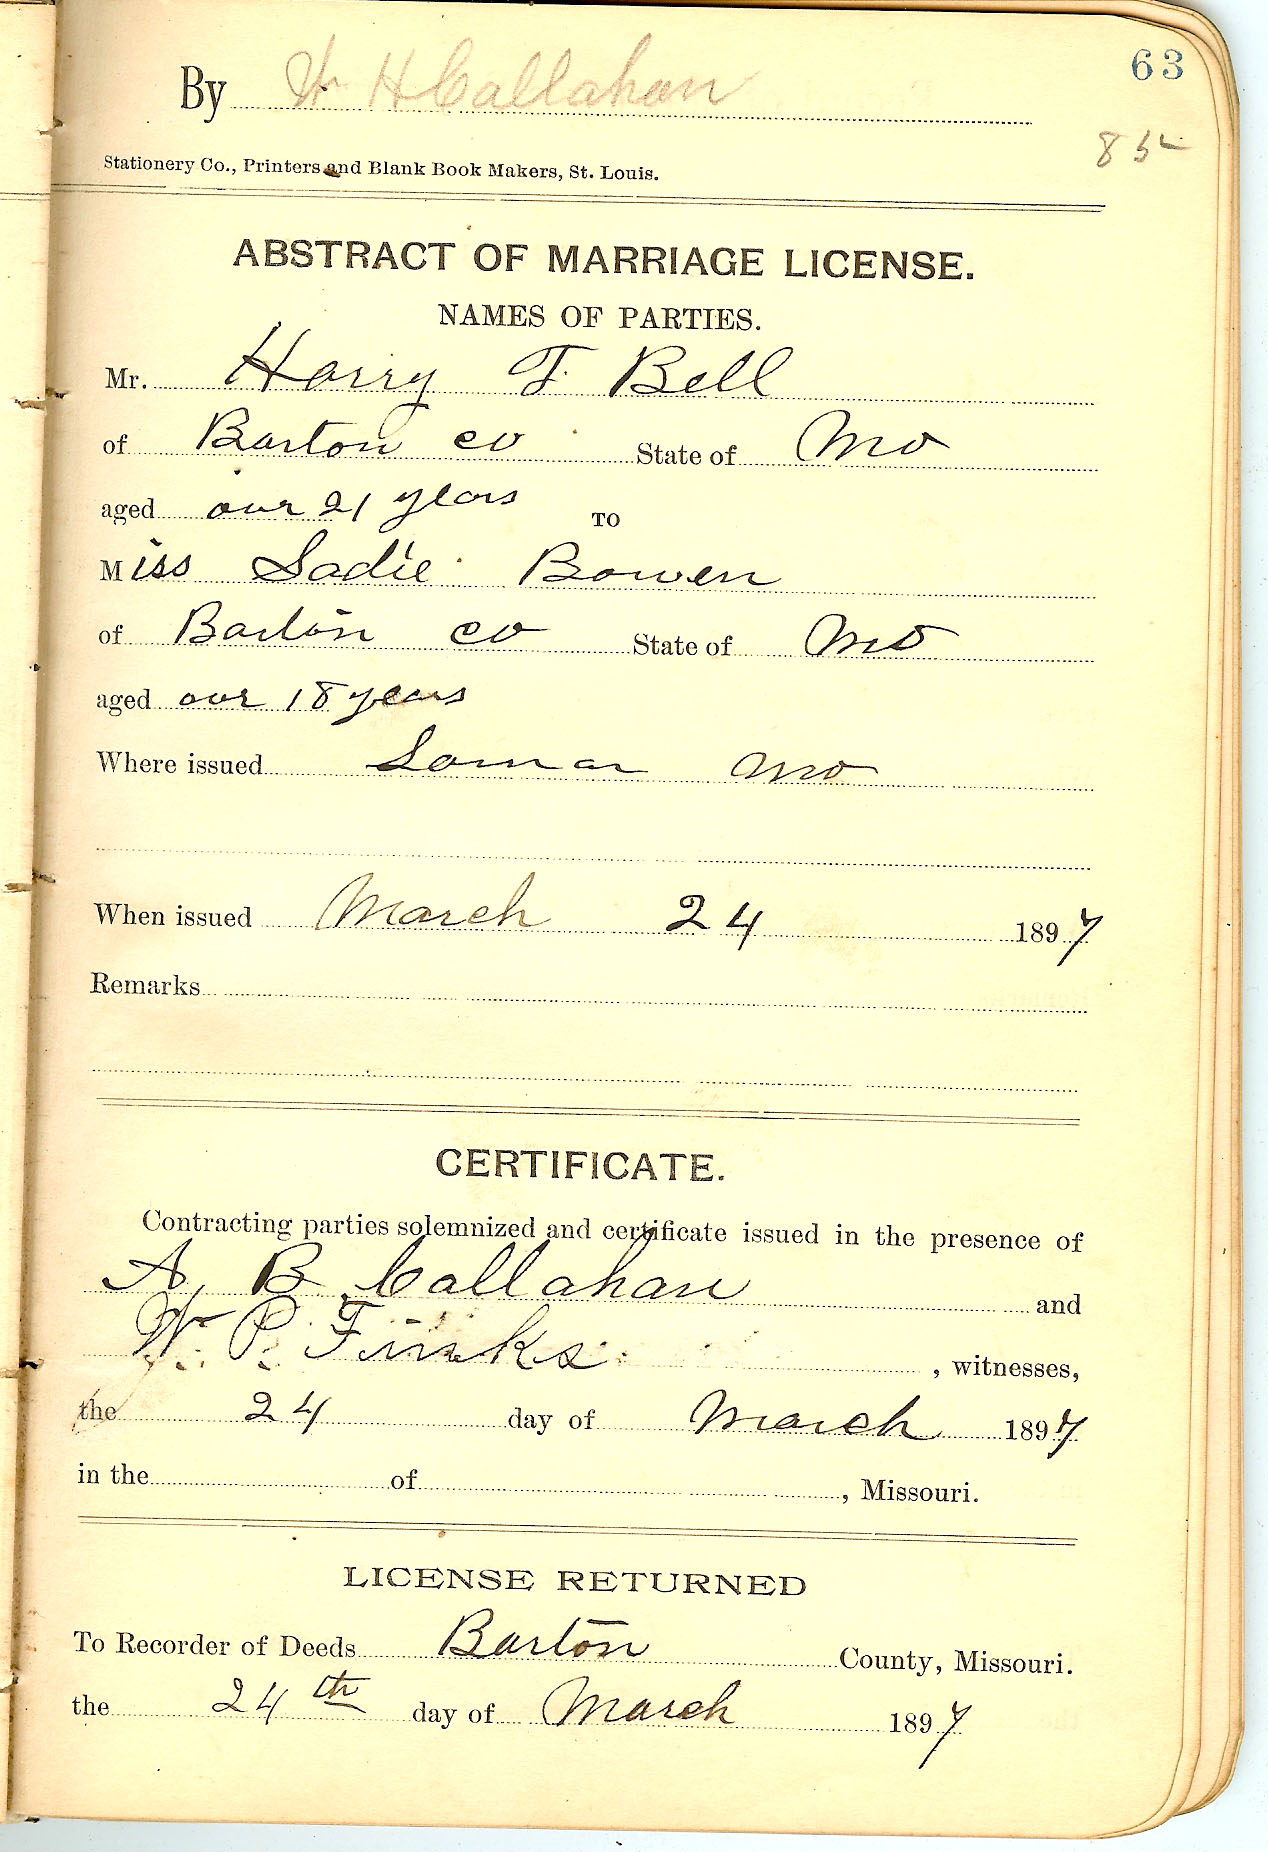 63
By Wm H Callahan
Stationery Co., Printers and Blank Book Makers, St. Louis.
ABSTRACT OF MARRIAGE LICENSE.
NAMES OF PARTIES.
Mr. Harry F Bell
of Barton co State of Mo
aged over 21 years TO
Miss Sadie Bowen
of Barton co State of Mo
aged over 18 years
Where issued Lamar Mo
When issued March 24 1897
Remarks
CERTIFICATE.
Contracting parties solemnized and certificate issued in the presence of
A. B. Callahan and
W P. Finks , witnesses,
the 24 day of March 1897
in the of , Missouri.
LICENSE RETURNED
To Recorder of Deeds Barton County, Missouri.
the 24th day of March 1897